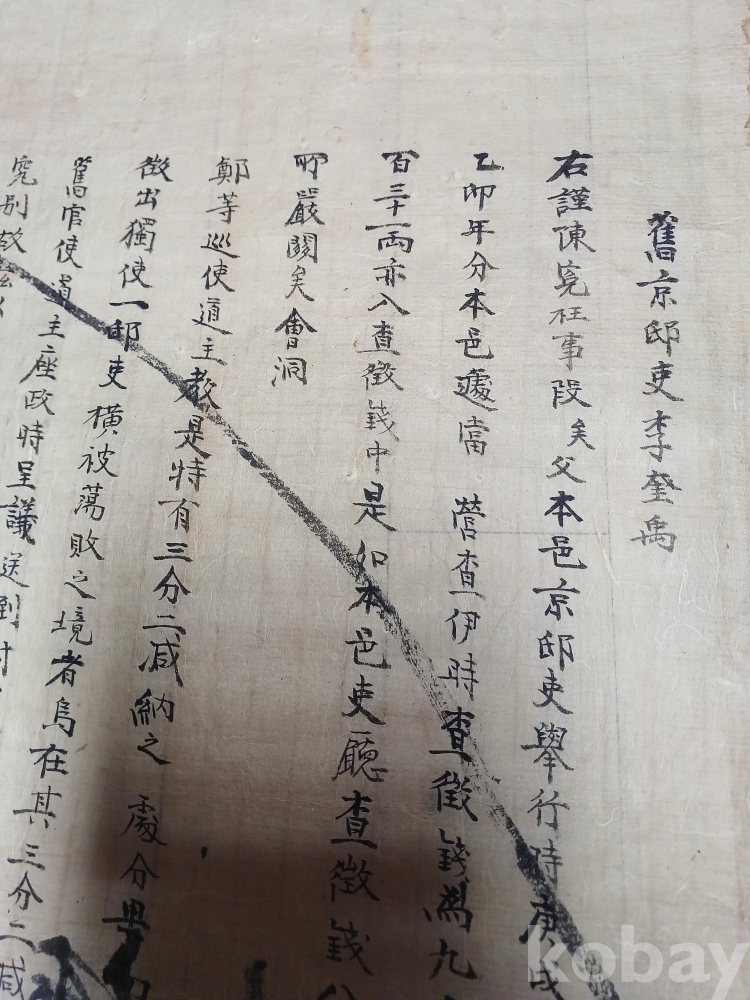 舊京邸吏李奎禹
右謹陳寃枉事段矣父本邑京邸吏擧行時庚戌
乙卯年分本邑遽當 營查伊時查徵錢爲九
百三十一兩亦入查徵錢中是如本邑吏廳查徵錢
嚴關矣會洞
鄭等巡使道主敎是特有三分二减納之 處分
徵出獨使一邸吏橫被蕩敗之境者烏在其三分二减
舊官使道主座政時呈議送到
究刖
kobay